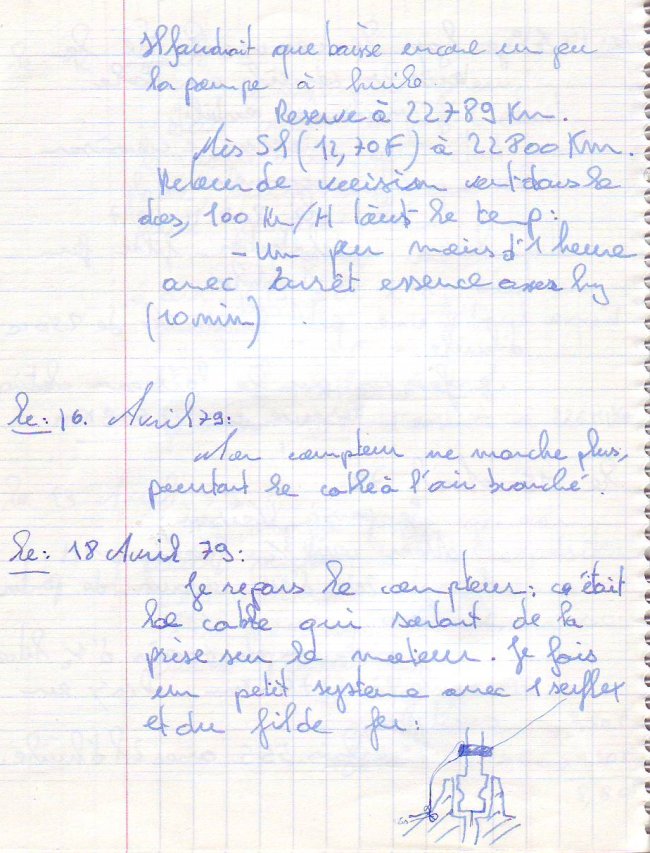 Il faudrait que baisse encore un peu
la pompe à huile.
Reserve à 22789 Km.
Mis 5l (12,70F) à 22800 Km.
Retour de vent dans le
dos, 100 Km/H tout le temp:
- Un peu moins d'1 heure
avec 1 arrêt essence
(10 min)
Le: 16. Avril 79:
Mon compteur ne marche plus,
pourtant le cable à l'air branché.
Le: 18 Avril 79:
Je repars le compteur: ca était
le cable qui sortait de la
prise sur le moteur. Je fais
un petit systeme avec 1 serflex
et du fil de fer: